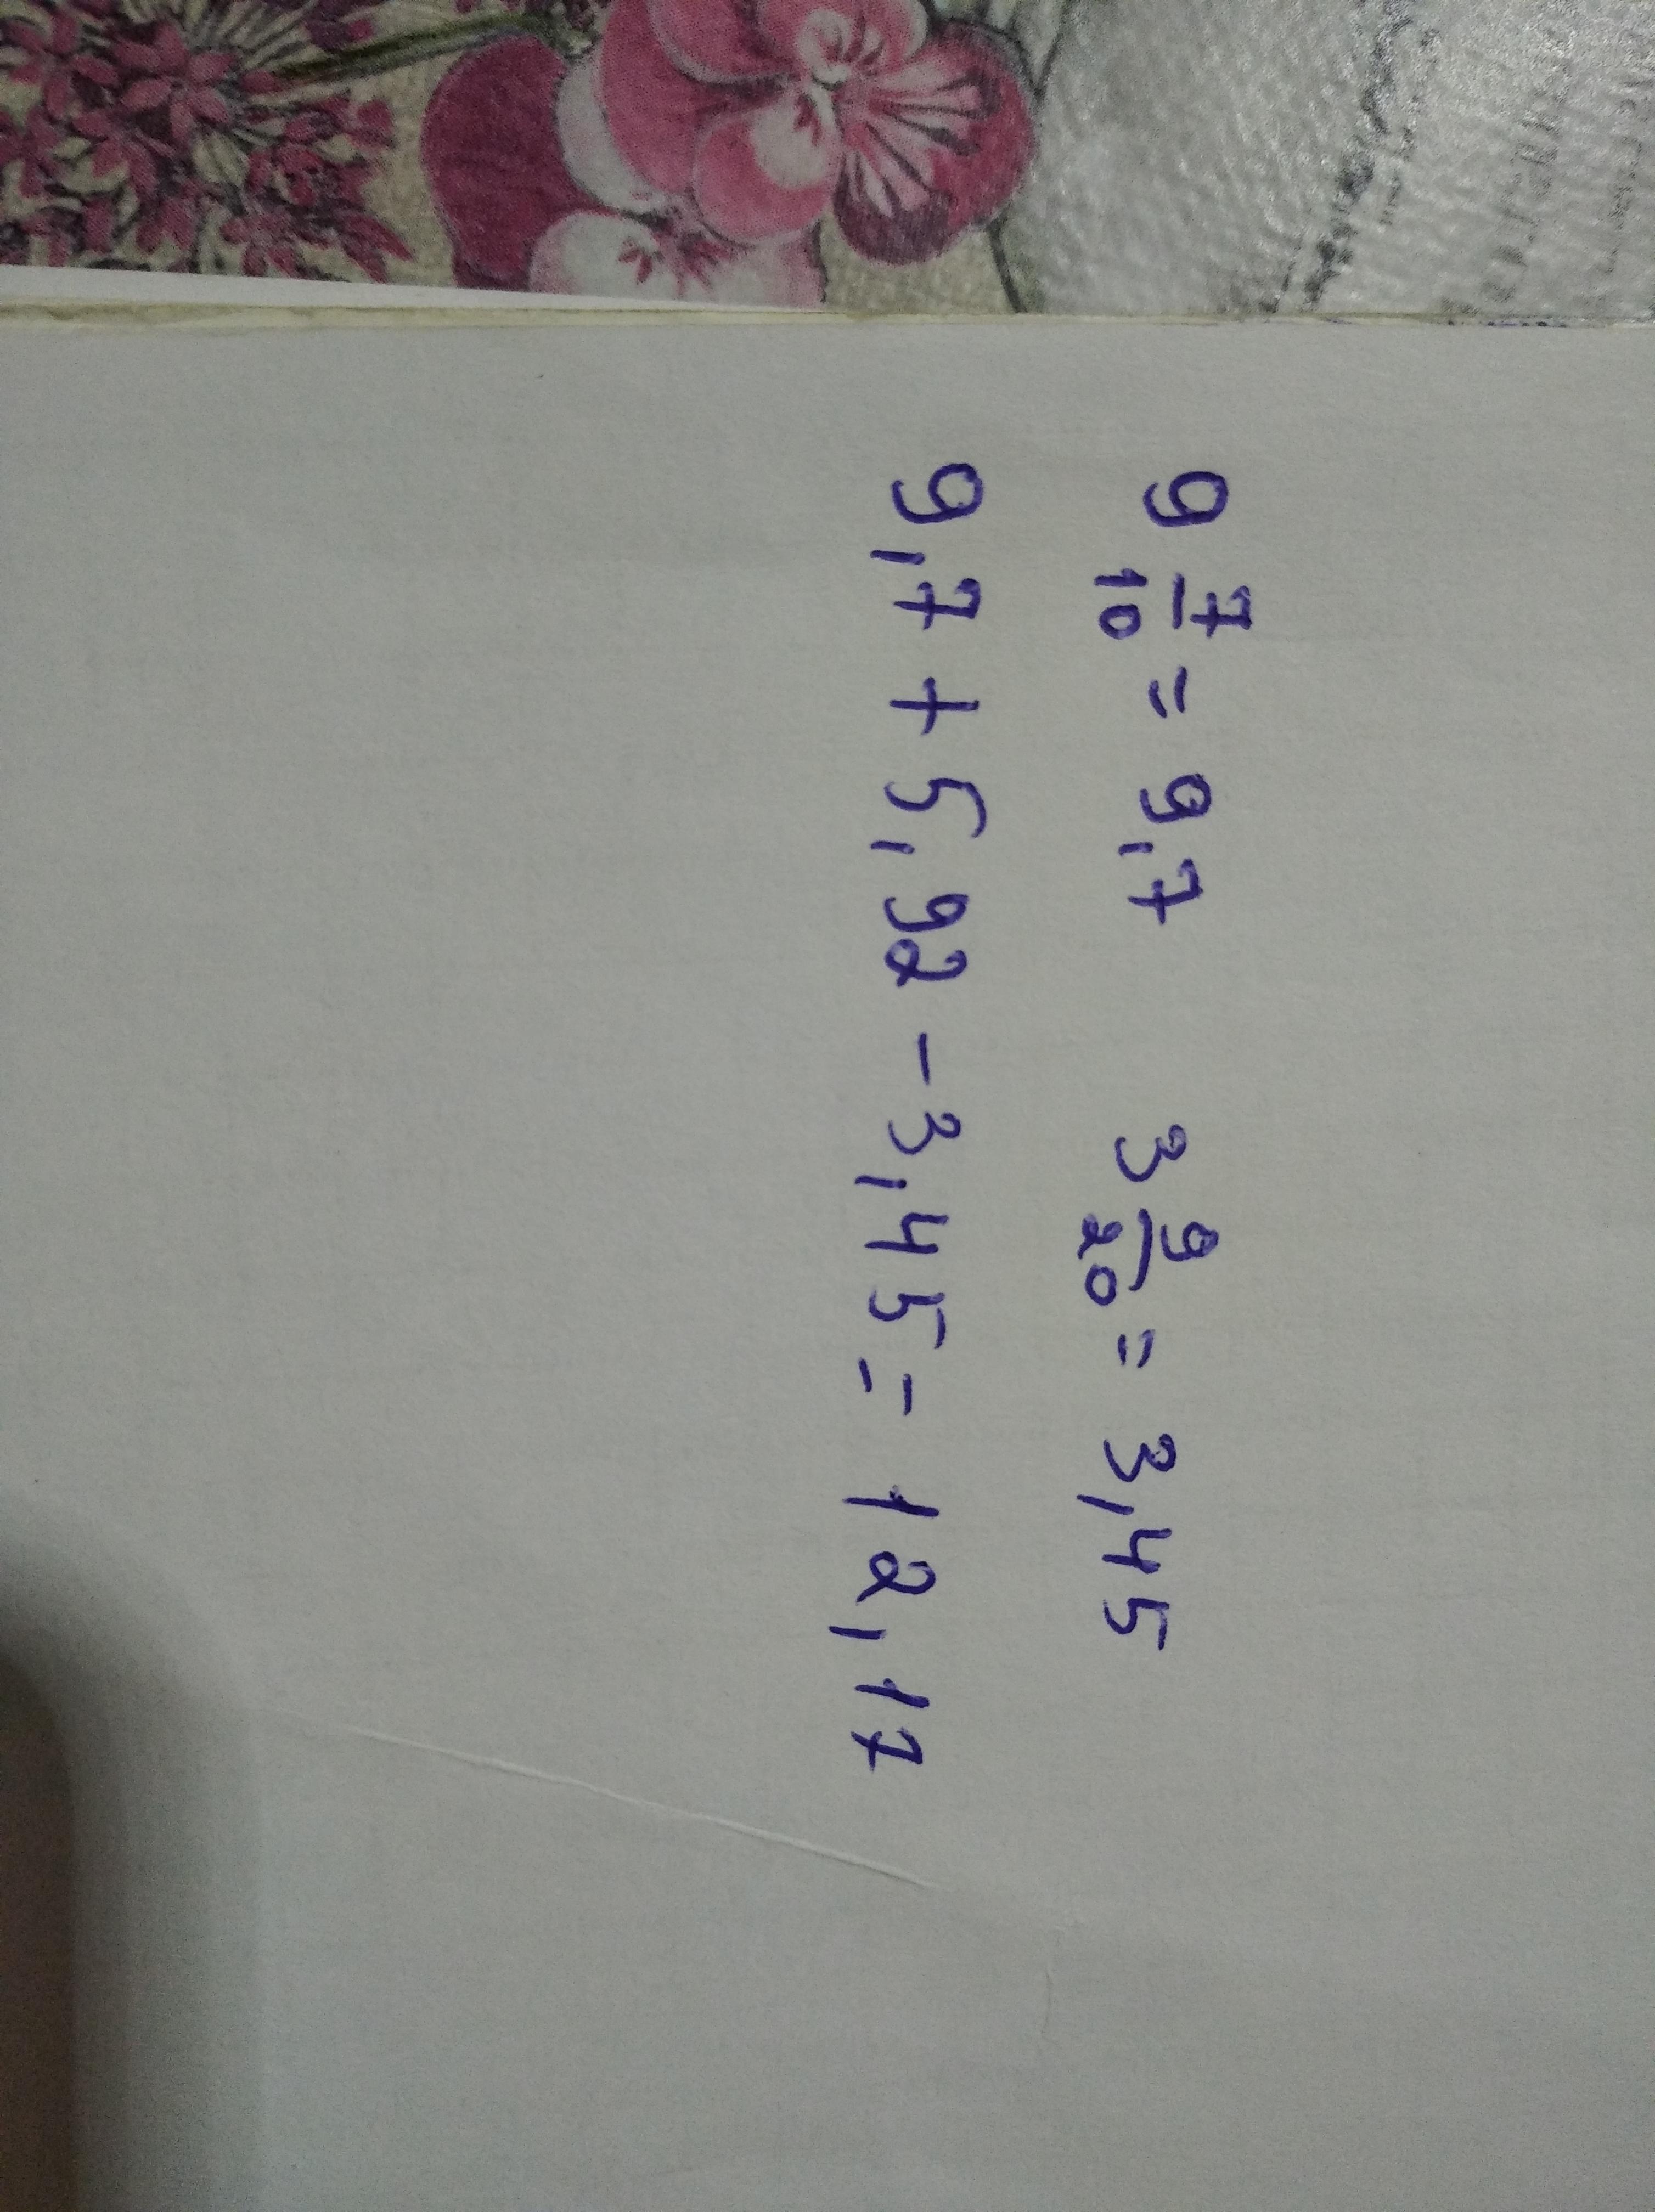 9 7/10 = 9,7 3 9/20 = 3,45
9,7 + 5,92 - 3,45 = 12,17